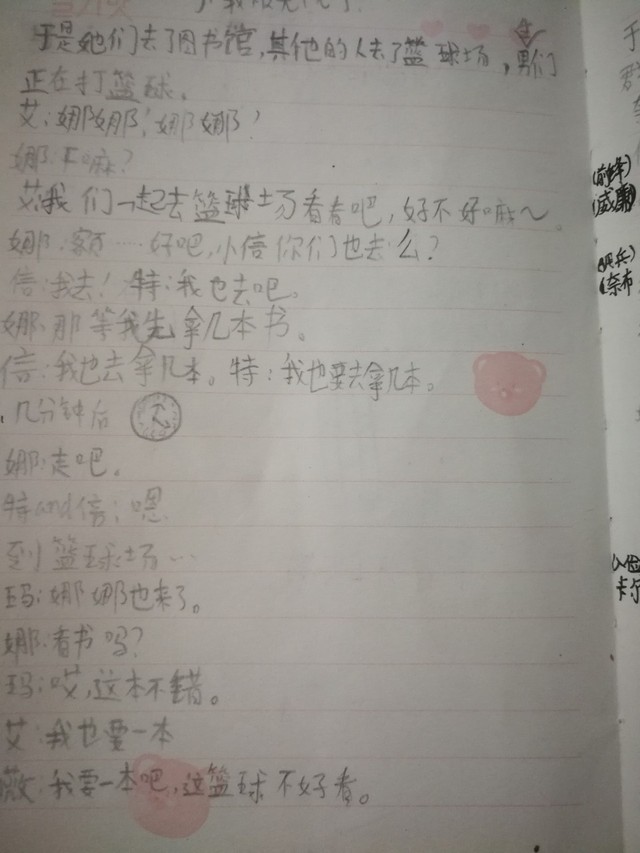 于是她们去了图书馆,其他的人去了篮球场,男们
正在打篮球。
艾:娜娜!娜娜!
娜:干嘛?
艾:我们一起去篮球场看看吧,好不好嘛~。
娜:额……好吧,小倍你们也去么?
倍:我去!特:我也去吧。
娜:那等我先拿几本书。
倍:我也去拿几本。特:我也要去拿几本。
几分钟后
娜:走吧。
特and倍:嗯
到篮球场…
玛:娜娜也来了。
娜:看书吗?
玛:哎,这本不错。
艾:我也要一本
薇:我要一本吧,这篮球不好看。